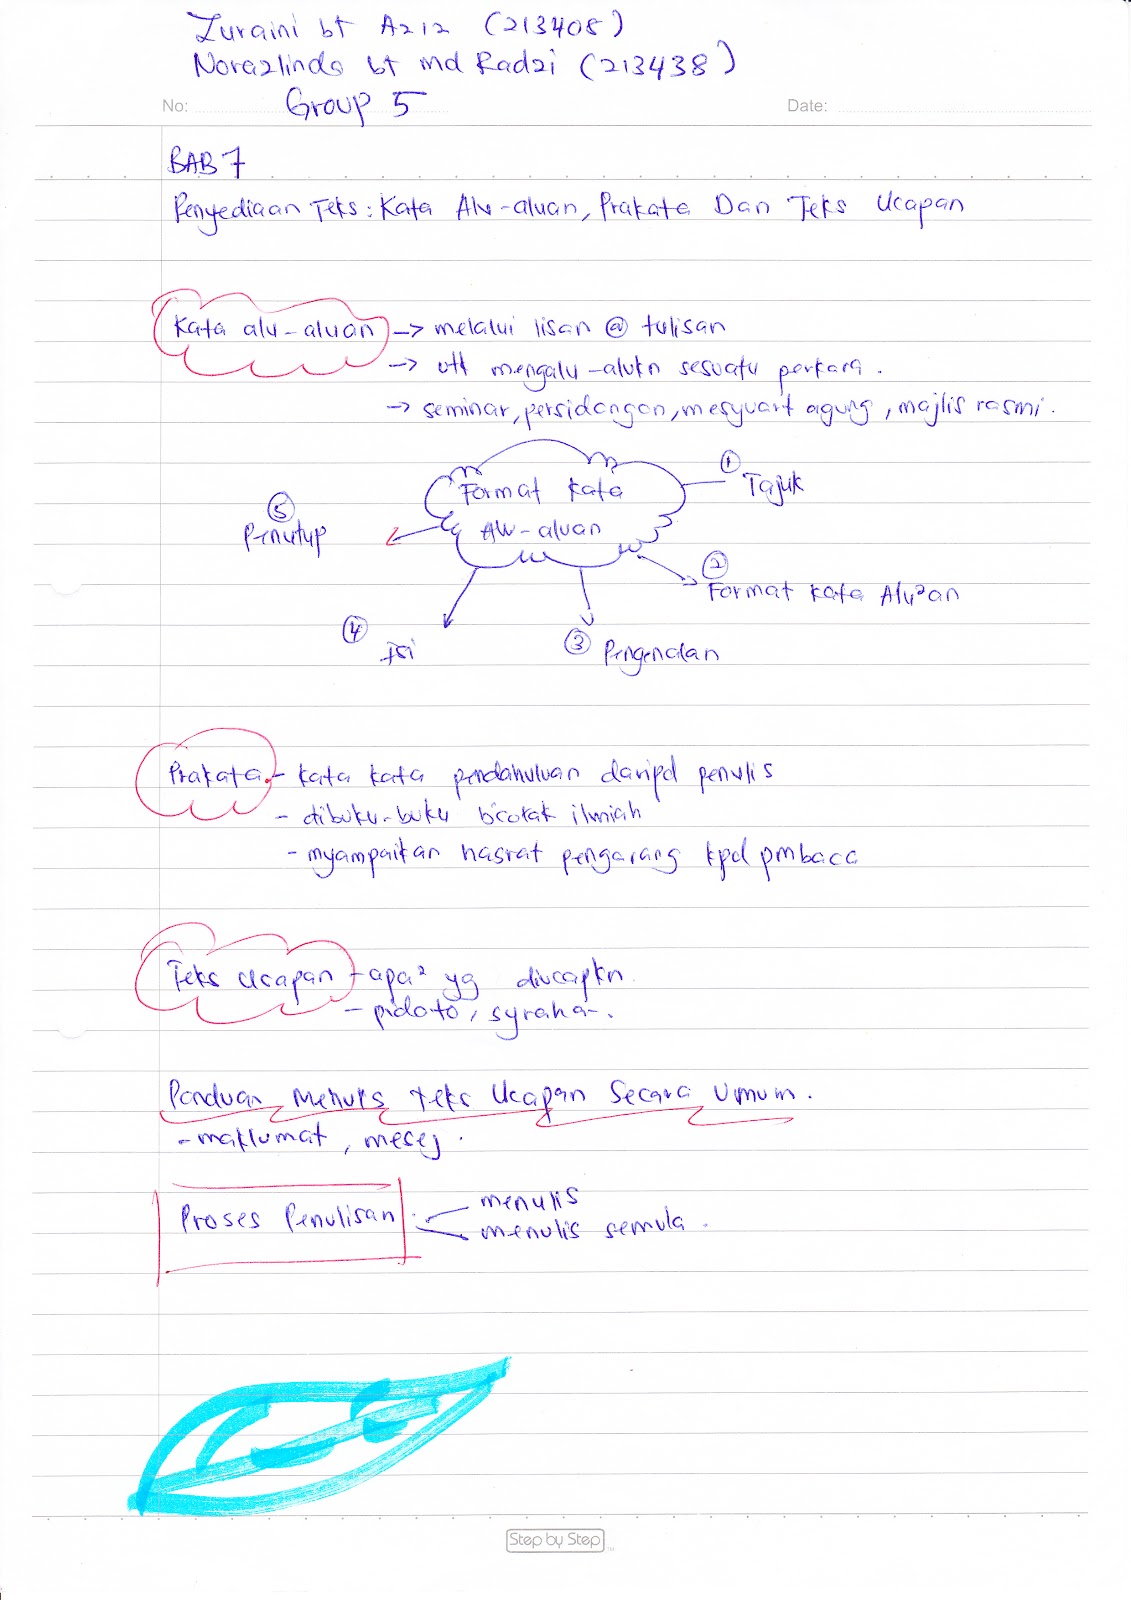 Zuraini bt Aziz (213408)
Norazlinda bt md Radzi (213438)
No: Group 5 Date:
BAB 7
Penyediaan Teks: Kata Alu-aluan, Prakata Dan Teks Ucapan
Kata alu-aluan -> melalui lisan @ tulisan
-> utk mengalu-alukn sesuatu perkara.
-> seminar, persidangan, mesyuart agung, majlis rasmi.
Format Kata
Alu-aluan
① Tajuk
② Format Kata Alu²an
③ Pengenalan
④ Isi
⑤ Penutup
Prakata - kata kata pendahuluan daripd penulis
- dibuku-buku b'corak ilmiah
- myampaikan hasrat pengarang kpd pmbaca
Teks Ucapan - apa² yg diucapkn
- pidato, syraha-.
Panduan Menulis teks Ucapan Secara Umum.
- maklumat, mesej.
Proses Penulisan
menulis
menulis semula.
Step by Step